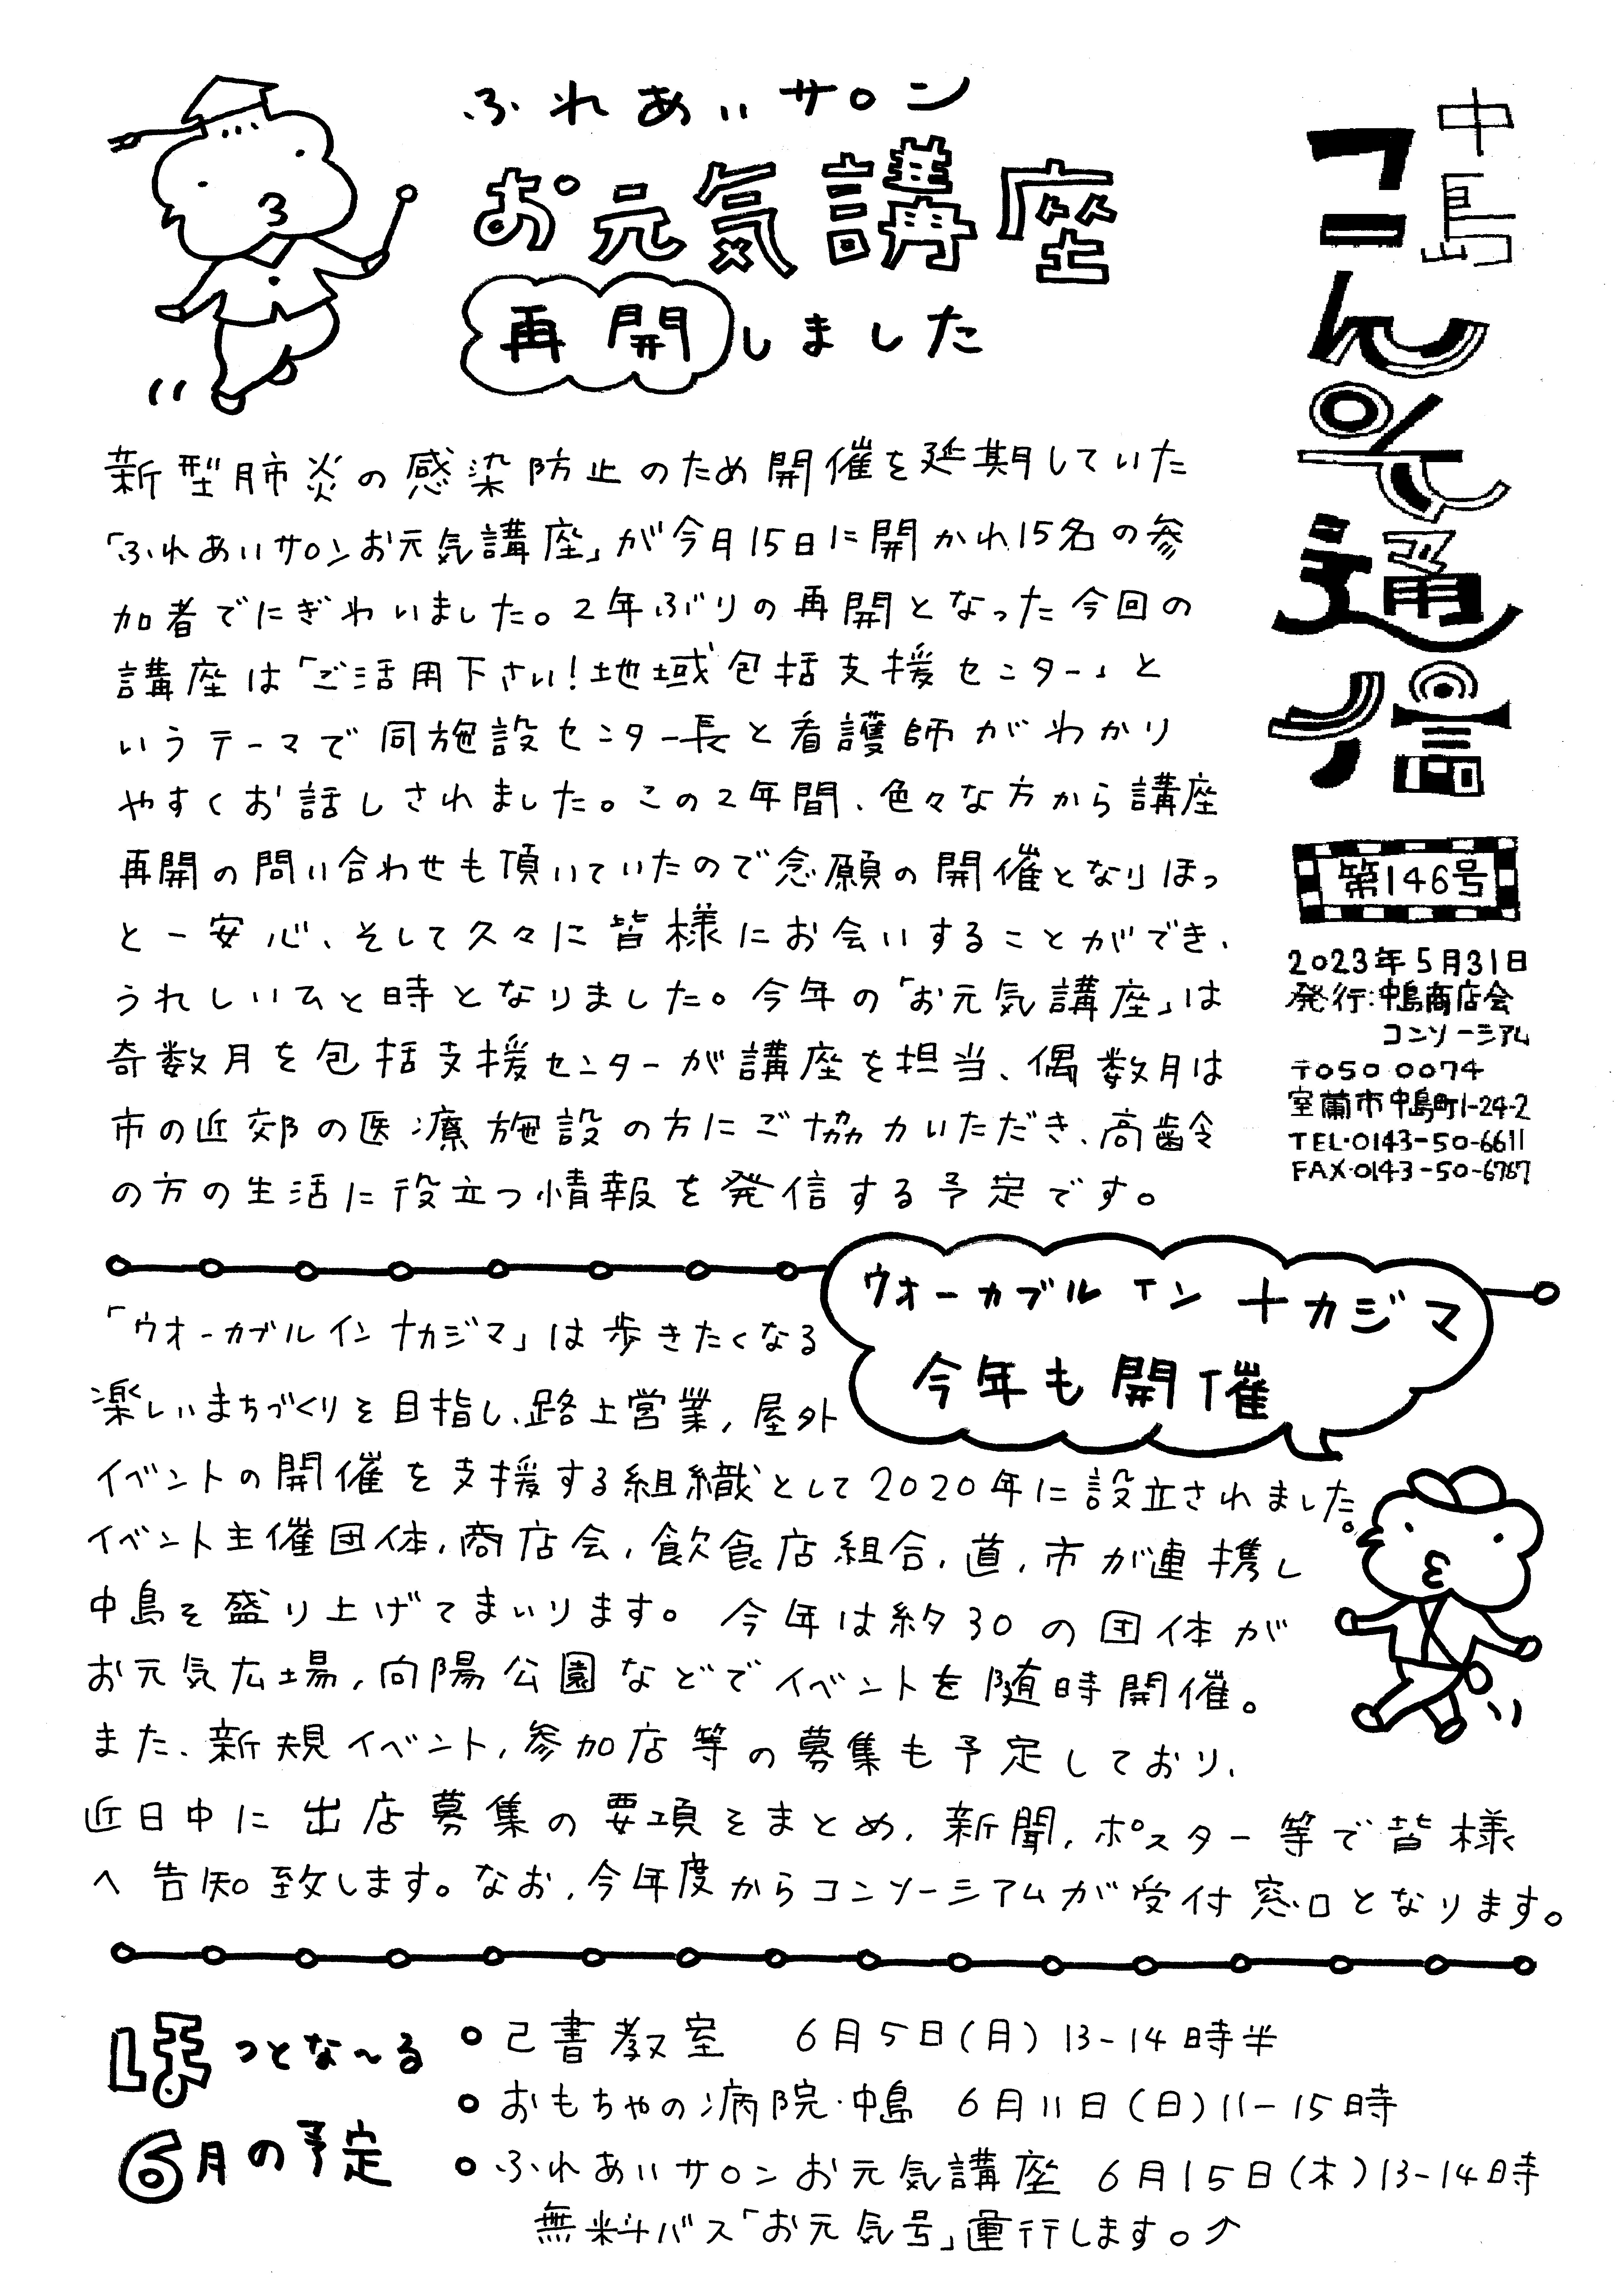 中島
こんそ通信
第146号
2023年5月31日
発行:中島商店会
コンソーシアム
〒050 0074
室蘭市中島町1-24-2
TEL・0143-50-6611
FAX・0143-50-6767
ふれあいサロン
お元気講座
再開しました
新型肺炎の感染防止のため開催を延期していた
「ふれあいサロンお元気講座」が今月15日に開かれ15名の参
加者でにぎわいました。2年ぶりの再開となった今回の
講座は「ご活用下さい!地域包括支援センター」と
いうテーマで同施設センター長と看護師がわかり
やすくお話しされました。この2年間、色々な方から講座
再開の問い合わせも頂いていたので念願の開催となりほっ
と一安心、そして久々に皆様にお会いすることができ、
うれしいひと時となりました。今年の「お元気講座」は
奇数月を包括支援センターが講座を担当、偶数月は
市の近郊の医療施設の方にご協力いただき、高齢令
の方の生活に役立つ情報を発信する予定です。
ウオーカブルインナカジマ
今年も開催
「ウオーカブルインナカジマ」は歩きたくなる
楽しいまちづくりを目指し、路上営業、屋外
イベントの開催を支援する組織として2020年に設立されました。
イベント主催団体、商店会、飲食店組合、道、市が連携し
中島を盛り上げてまいります。今年は約30の団体が
お元気広場、向陽公園などでイベントを随時開催。
また、新規イベント、参加店等の募集も予定しており、
近日中に出店募集の要項をまとめ、新聞、ポスター等で皆様
へ告知致します。なお、今年度からコンソーシアムが受付窓口となります。
ほっとな〜る
6月の予定
○己書教室 6月5日(月)13-14時半
○おもちゃの病院・中島 6月11日(日)11-15時
○ふれあいサロンお元気講座 6月15日(木)13-14時
無料バス「お元気号」運行します。⤴